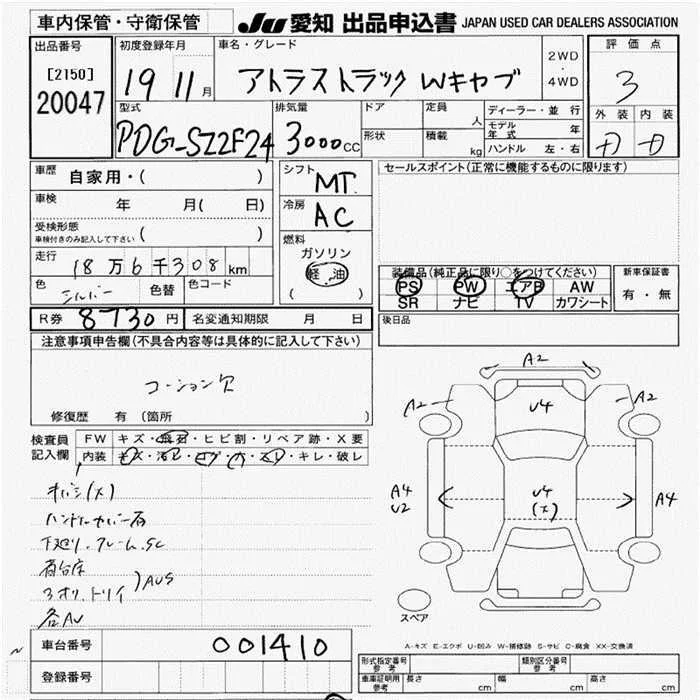 車内保管・守衛保管 JU 愛知 出品申込書 JAPAN USED CAR DEALERS ASSOCIATION
出品番号 初度登録年月 車名・グレード 2WD・4WD 評価点
[2150] 19 11月 アトラストラック Wキャブ 3
20047
型式 排気量 ドア 定員 人 ディーラー・並行 外装 内装
PDG-SZ2F24 3000cc 形状 積載 kg モデル年式 年 D D
ハンドル 左・右
車歴 自家用・( ) シフト MT セールスポイント(正常に機能するものに限ります)
車検 年 月( 日) 冷房 AC
受検形態 ( )
車検付きのみ記入して下さい
燃料
走行 18万6千308km ガソリン
軽油
( )
装備品(純正品に限り○をつけてください) 新車保証書
色 シルバー 色替 色コード PS PW エアB AW 有・無
SR ナビ TV カワシート
R券 8730円 名変通知期限 月 日 後日品
注意事項申告欄(不具合内容等は具体的に記入して下さい)
コーション欠
修復歴 有 (箇所
検査員記入欄 FW キズ・飛石・ヒビ割・リペア跡・X要
内装 キズ・汚レ・コゲ・穴・スレ・キレ・破レ
A2
A2 A2
U4
A4 U2 U4 (X) A4
キバミ(X)
下廻り、フレーム、SC
荷台床
AUS
各AU
スペア
車台番号 001410
A-キズ E-エクボ U-凹み W-補修跡 S-サビ C-腐食 XX-交換済
登録番号
形式指定番号 参考 類別区分番号 参考
車庫証明用 参考 長さ cm 幅 cm 高さ cm